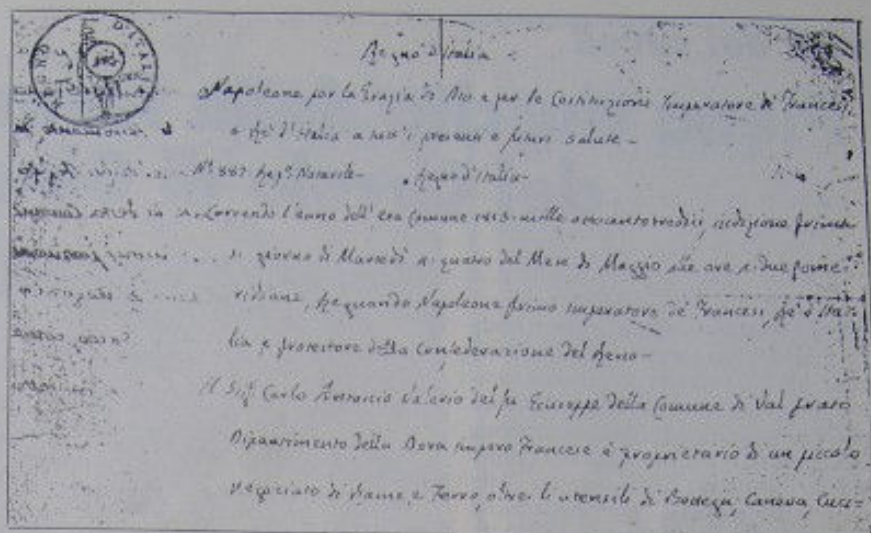 REGNO D'ITALIA
Regno d'Italia
Napoleone por la Grazia di Dio e per le Costituzioni Imperatore de' Francesi
e Re d'Italia a tutt'i presenti e futuri salute -
N° 887 Reg° Notarile - Regno d'Italia -
Correndo l'anno dell'era Comune 1813 mille ottocentotredici, indizione prima
il giorno di Martedì quatro del Mese di Maggio alle ore due pome-
ridiane, Regnando Napoleone primo Imperatore de' Francesi, Re d'Ita-
lia e protettore della Confederazione del Reno -
Il Sigr Carlo Antonio Valerio del fu Giuseppe della Comune di Val prato
Dipartimento della Dora Impero Francese è proprietario di un piccolo
Negoziato di Rame, e Ferro, oltre li utensili di Bottega, Canova, Cuci-